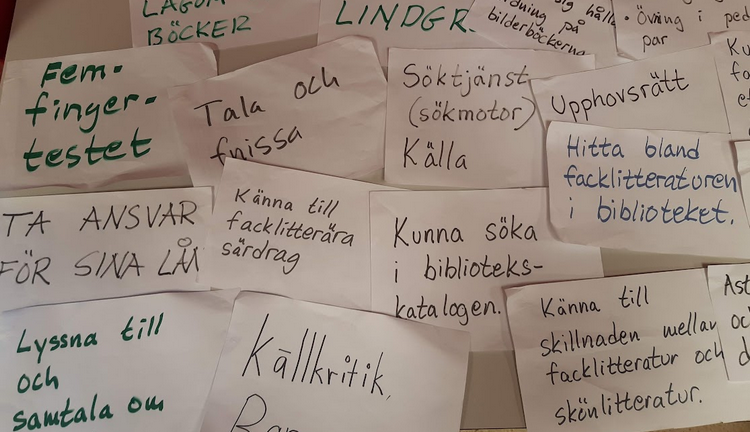 LAGOM
BÖCKER
LINDGR
på
bilderböckerna
• Övning i
par
Fem-
finger-
testet
Tala och
fnissa
Söktjänst
(sökmotor)
Källa
Upphovsrätt
Hitta bland
facklitteraturen
i biblioteket.
TA ANSVAR
FÖR SINA LÅN
Känna till
facklitterära
särdrag
Kunna söka
i biblioteks-
katalogen.
Känna till
skillnaden mellan
facklitteratur och
skönlitteratur.
Ast
oc
d
Lyssna till
och
samtala om
Källkritik.